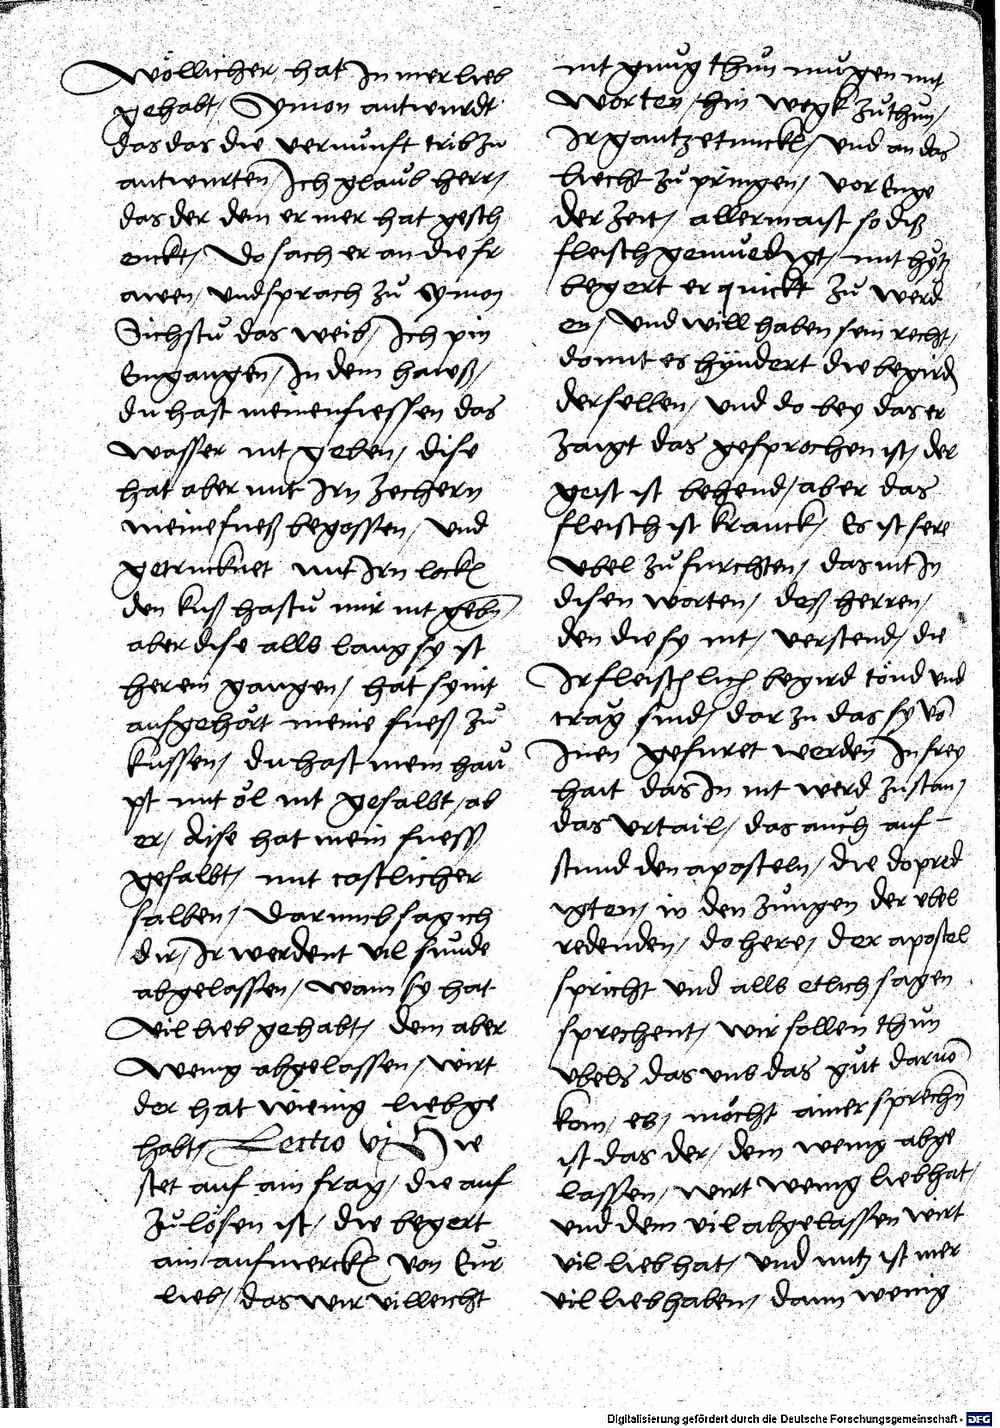 wöllicher, hat In mer lieb
gehabt, Symon antwurdt
das das die vernunfft trib zu
antwurten, Ich glaub herr,
das der dem er mer hat gesch
enckt, Do sach er an die fr
awen, und sprach zu Symon
Sichstu das weib, Ich pin
Eingangen, In dein hawß,
du hast meinen fiessen das
wasser nit geben, dise
hat aber mit Irn zechern
meine fueß begossen, Und
getrucknet mit Irn lock
den kuß hastu mir nit gebn
aber dise alls lang sy ist
herein gangen, hat sy nit
aufgehört meine fueß zu
kussen, du hast mein hau
pt mit öl nit gesalbt, ab
er, dise hat mein fuess
gesalbt, mit costlicher
salben, Darumb sag ich
dir, Ir werdent vil sunde
abgelassen, wann sy hat
vil lieb gehabt, dem aber
wenig abgelassen, wirt
der hat wienig lieb ge
habt, Lectio vj Hie
stet auf ain frag, die auf
zulösen ist, die begert
ain aufmerck von Eur
lieb, das wir villeicht
nit gnug thun mugen mit
worten, hin wegk zu thun,
Ir gantze tunckl, Und an das
liecht zu pringen, vor Enge
der zeit, allermaist so diß
fleisch gemuedigt, mit hytz
begert erquickt zu werd
en, Und will haben sein recht,
domit es hyndert die begird
derselben, Und do bey das er
zaigt das gesprochen ist, der
geist ist behend, aber das
fleisch ist kranck, Es ist sere
Ubel zu furchten, das nit In
disen worten, deß herren,
den die sy nit, verstend, die
Ir fleischlich begird tönd und
trag sind, dar zu das sy vo
Inen gefuret werden In frey
hait das In nit werd zu stan,
das Urtail, das auch auf-
stund den aposteln, die do pred
igten, in den zungen der ubel
redenden, do here, der apostel
spricht Und alls etlich sagen
sprechent, wir sollen thun
Ubels das uns das gut daruo
kom, es, möcht ainer sprechn
ist das der, dem wenig abge
lassen, wirt wenig lieb hat,
und dem vil abgelassen wirt
vil lieb hat, Und nutz ist mer
vil lieb haben, dann wenig
Digitalisierung gefördert durch die Deutsche Forschungsgemeinschaft - DFG